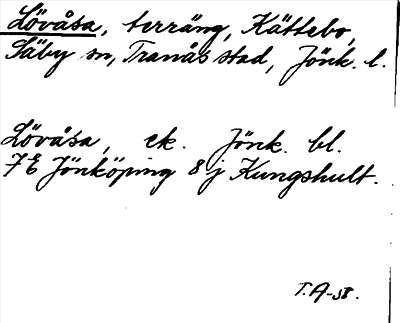 Lövåsa, terräng, Kättebo,
Säby sn, Tranås stad, Jönk. l.
Lövåsa, ek. Jönk. bl.
7E Jönköping 8 j Kungshult.
T.A-st.